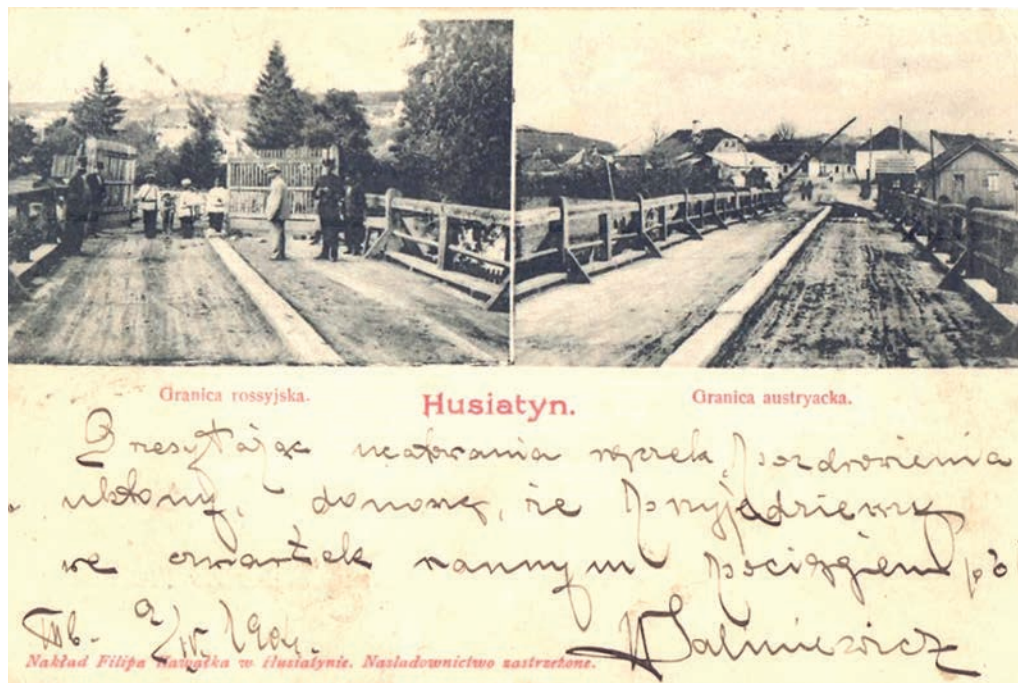 Granica rossyjska.
Husiatyn.
Granica austryacka.
Przesyłając ucałowania rączek, pozdrowienia
ukłony, donoszę, że przyjedziemy
we czwartek rannym pociągiem
9/IV. 1904.
Nakład Filipa Kawałka w Husiatynie. Naśladownictwo zastrzeżone.